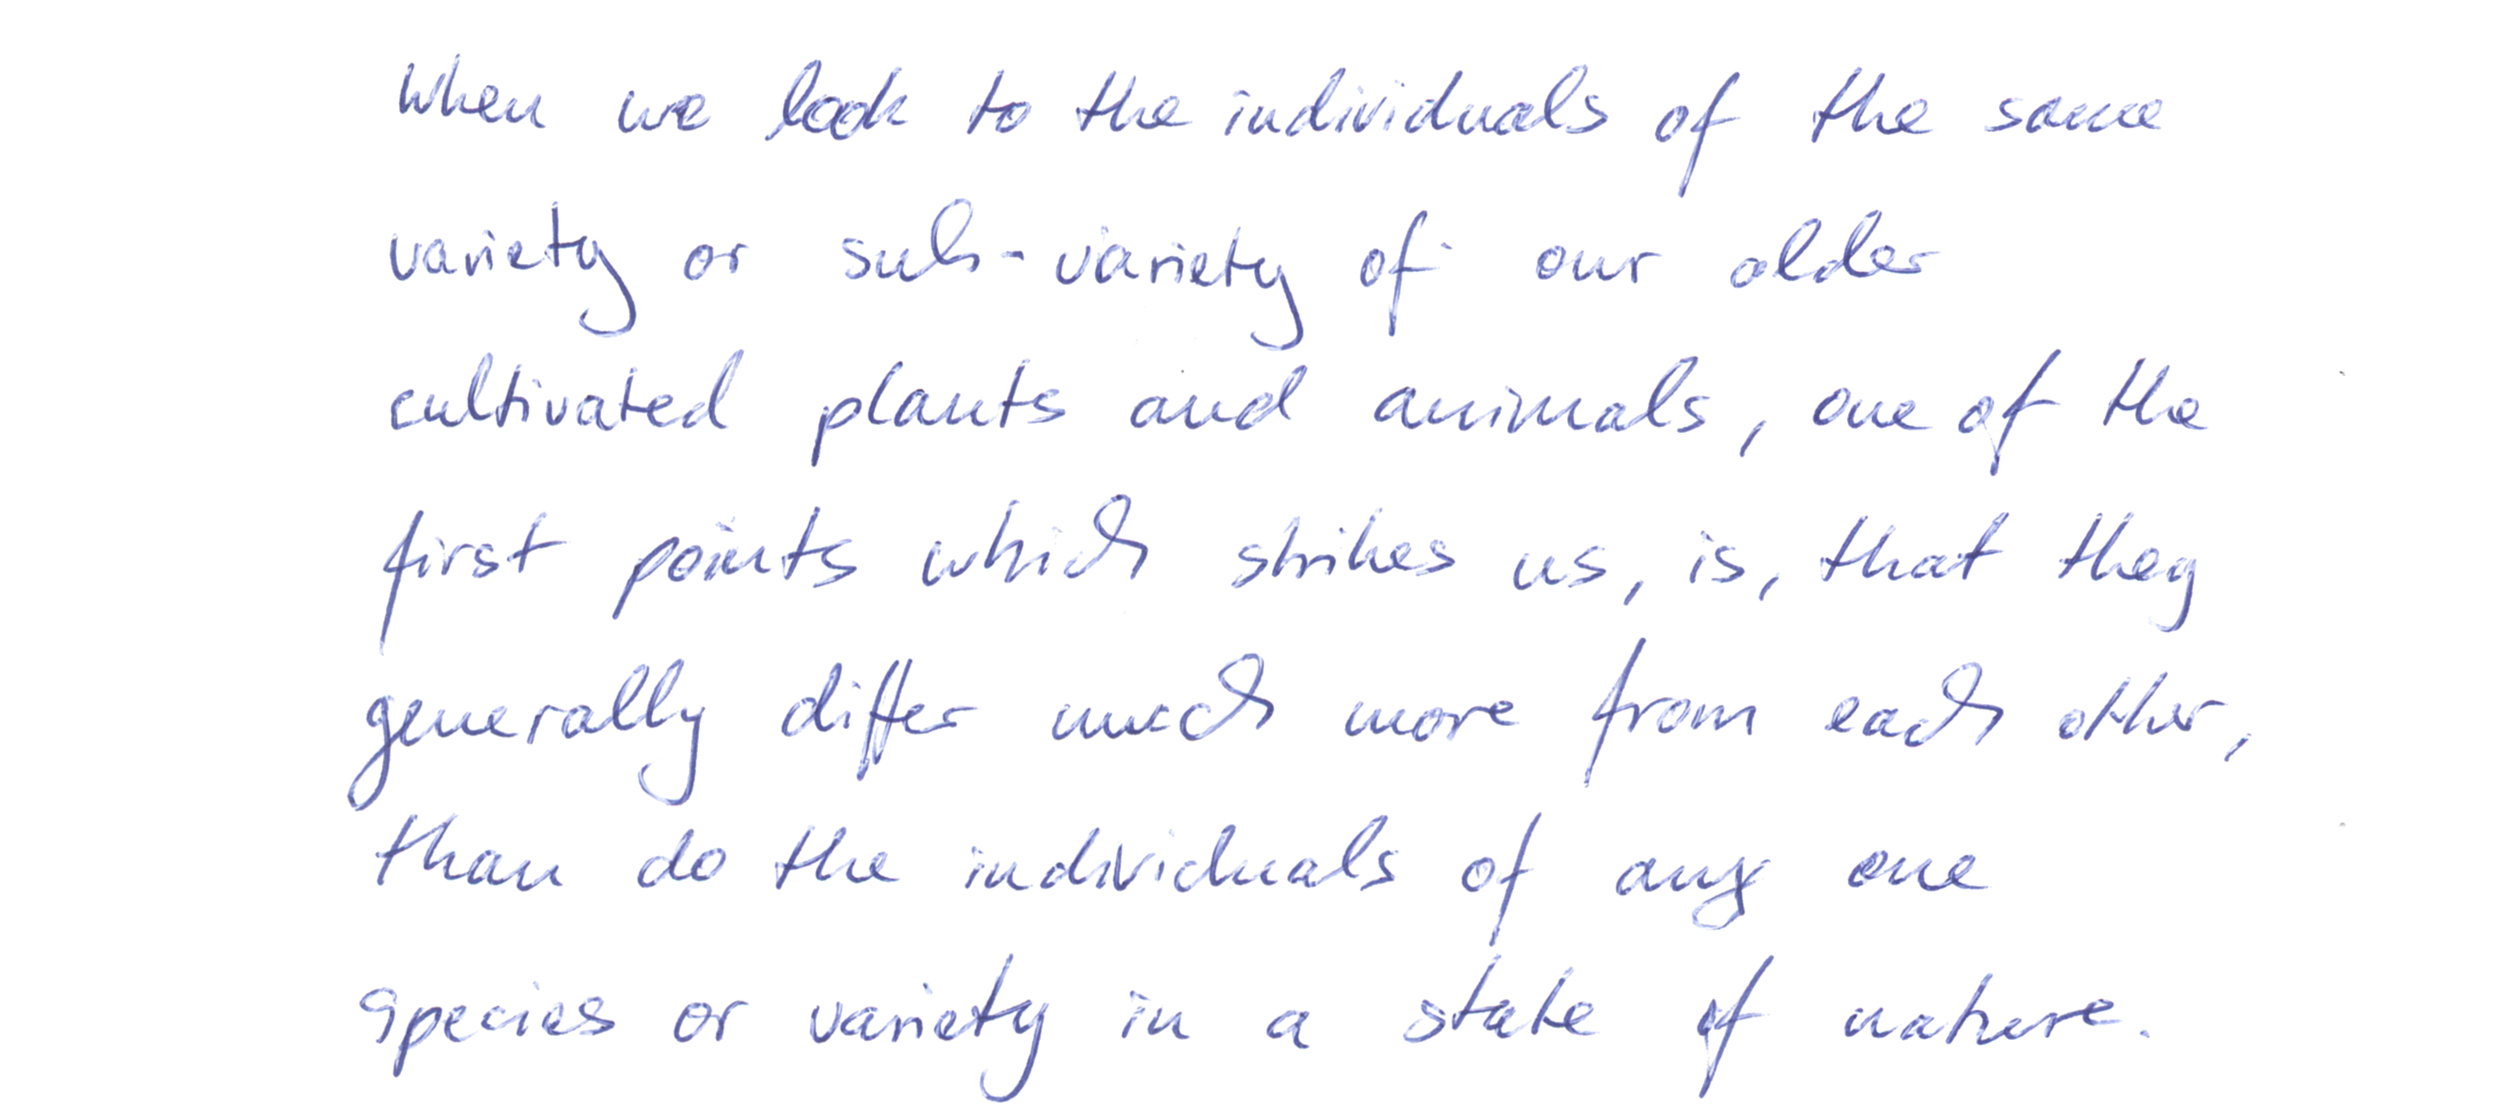 When we look to the individuals of the same
variety or sub-variety of our older
cultivated plants and animals, one of the
first points which strikes us, is, that they
generally differ much more from each other,
than do the individuals of any one
species or variety in a state of nature.